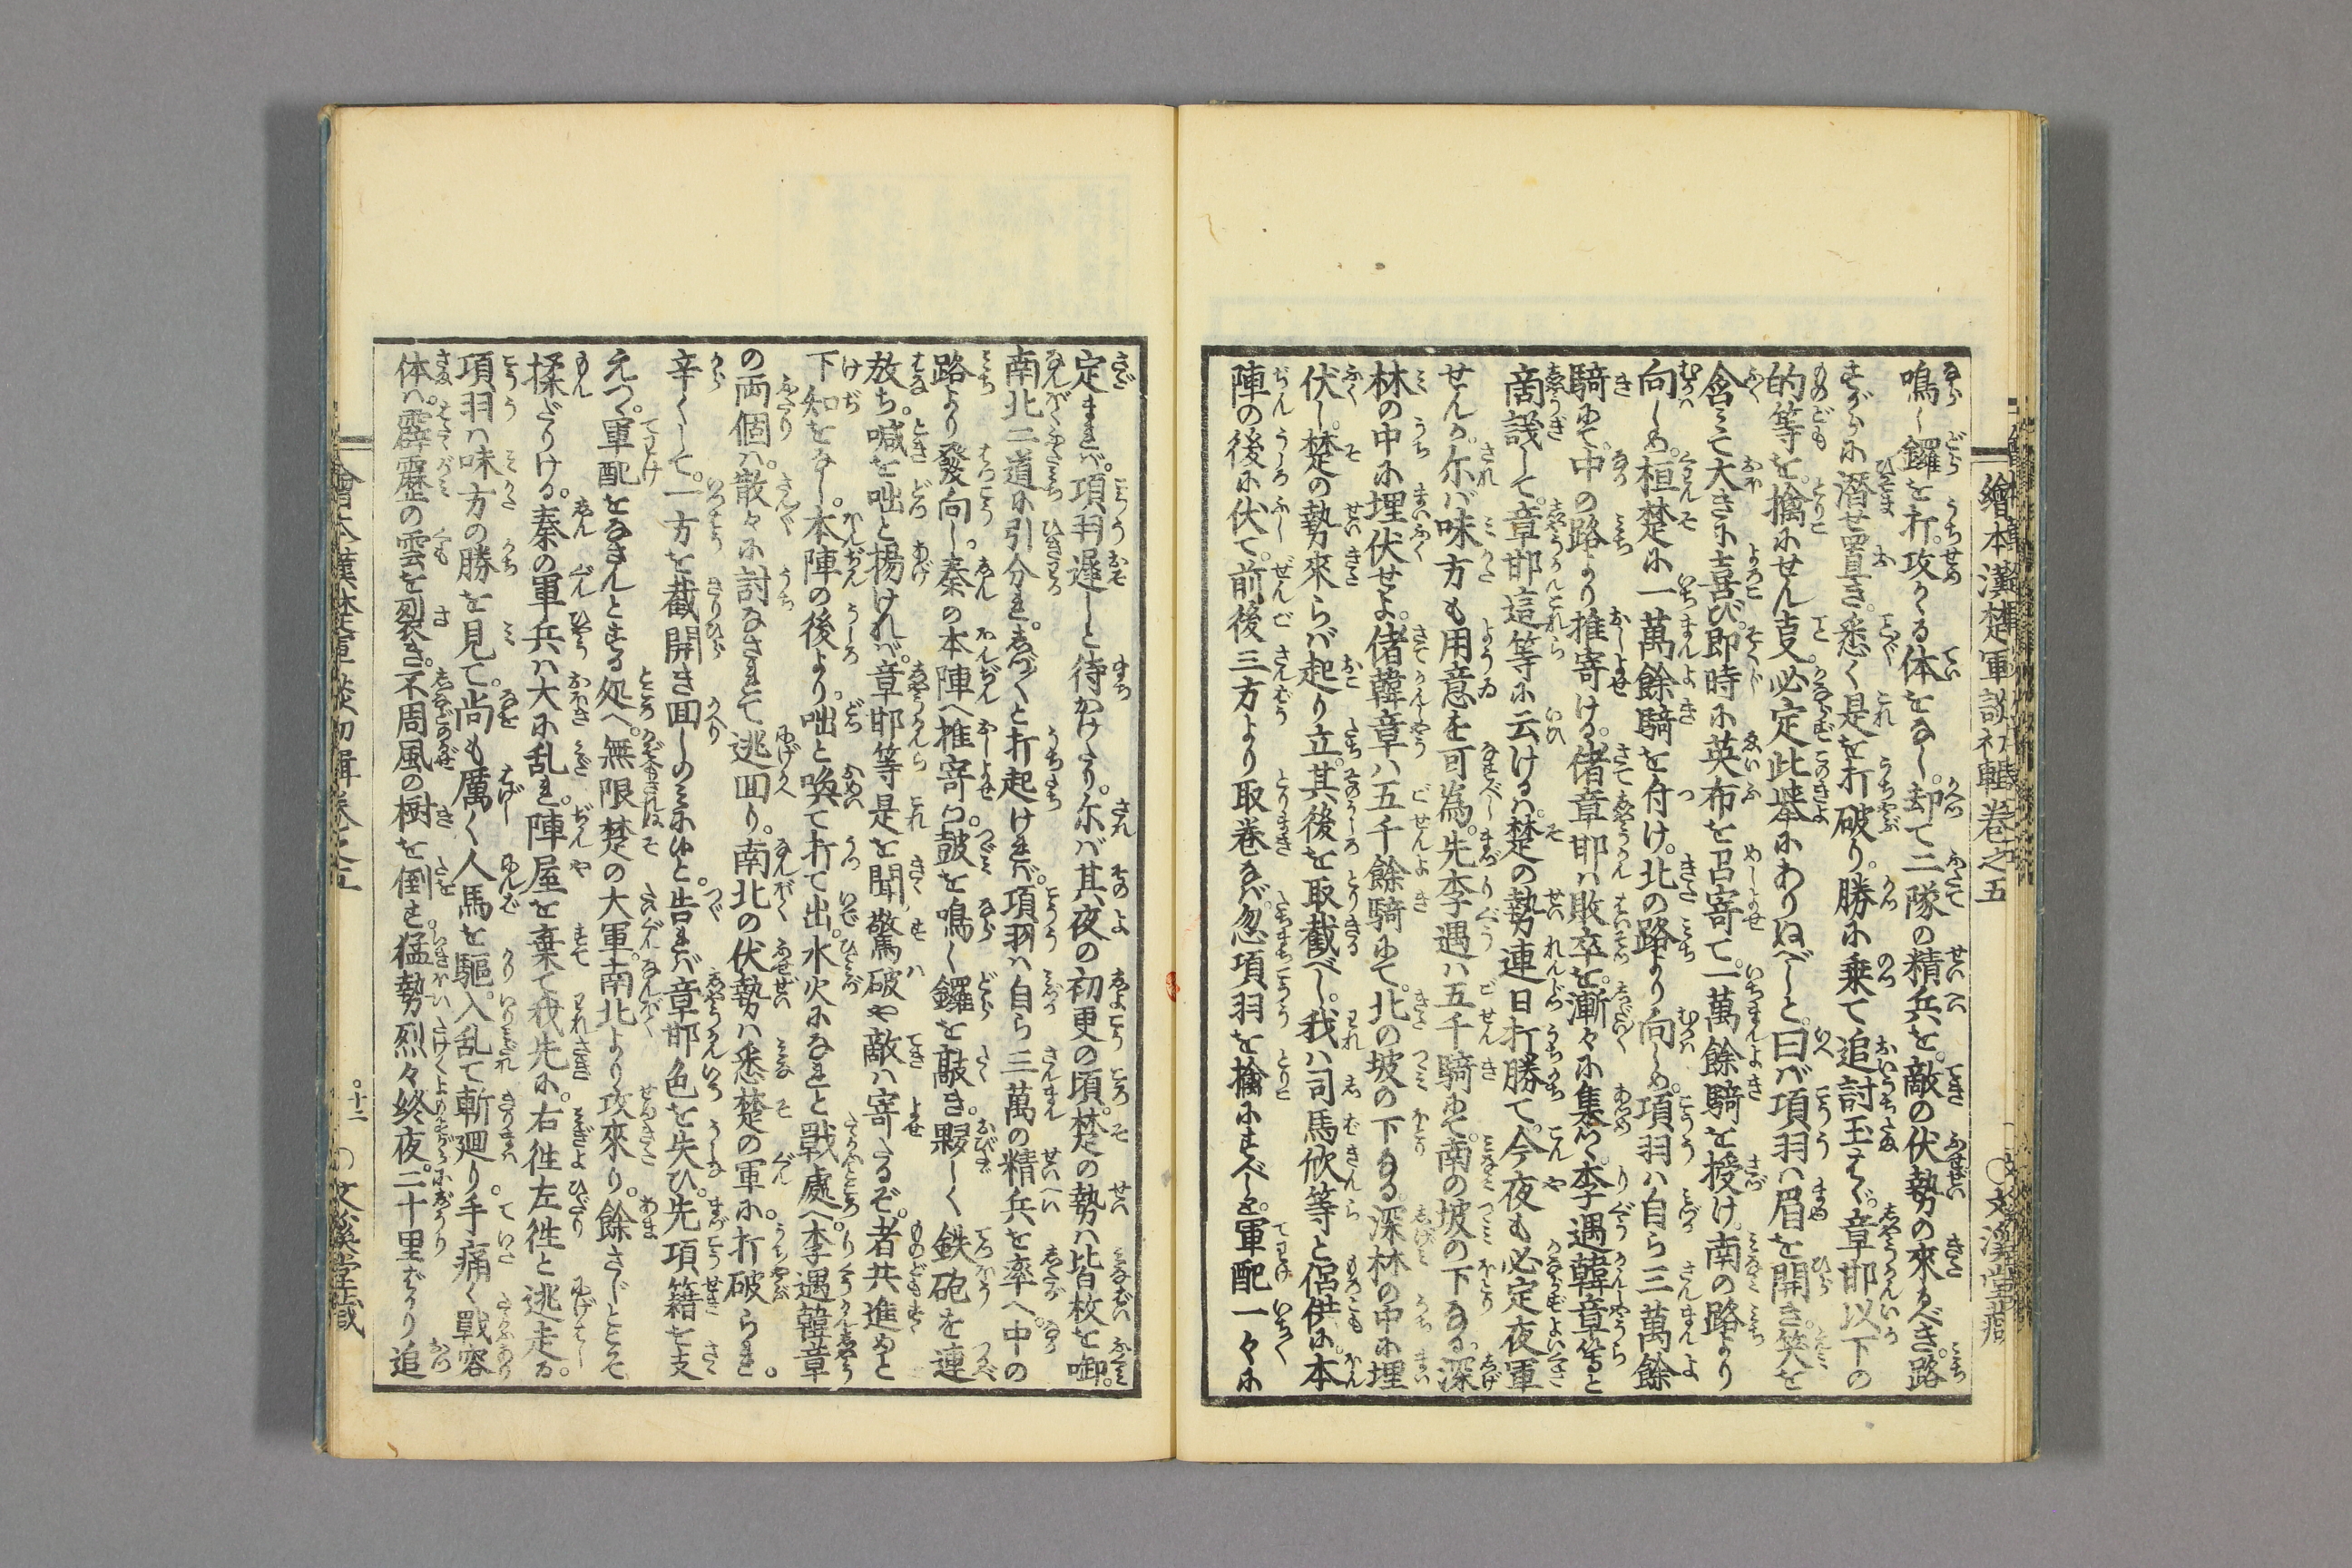 繪本漢楚軍談初輯卷之五
○文溪堂藏
鳴し鑼を打。攻くる体をなし。却て二隊の精兵を。敵の伏勢の來るべき。路
すがらに潜せ置き。悉く是を打破り。勝に乗て追討玉はゞ。章邯以下の
的等を。擒にせん事。必定此挙にありぬべしと。曰ば項羽は眉を開き。笑を
含みて大きに喜び。即時に英布を召寄て。一萬餘騎を授け。南の路より
向しめ。桓楚に一萬餘騎を付け。北の路より向しめ。項羽は自ら三萬餘
騎にて。中の路より推寄ける。偖章邯は敗卒を。漸々に集め。李遇韓章等と
商議して。章邯這等に云けるは。楚の勢連日打勝て。今夜も必定夜軍
せんか。尓ば味方も用意を可為。先李遇は五千騎にて。南の坡の下なる。深
林の中に埋伏せよ。偖韓章は五千餘騎にて。北の坡の下なる。深林の中に埋
伏し。楚の勢來らば起り立。其後を取截べし。我は司馬欣等と侶供に。本
陣の後に伏て。前後三方より取巻なば。忽項羽を擒にすべしと。軍配一々に
定まれば。項羽遅しと待かけたり。尓ば其夜の初更の頃。楚の勢は皆枚を啣。
南北二道に引分れ。しづ〱と打起ければ。項羽は自ら三萬の精兵を率へ。中の
路より發向し。秦の本陣へ推寄つゝ。皷を鳴し鑼を敲き。夥しく鉄砲を連
放ち。喊を咄と揚ければ。章邯等是を聞。驚破や敵は寄たるぞ。者共進めと
下知をなし。本陣の後より。咄と喚て打て出。水火になれと戰處へ。李遇韓章
の両個は。散々に討なされて逃回り。南北の伏勢は悉楚の軍に。打破られ。
辛くして。一方を截開き回しのみに候と。告れば章邯色を失ひ。先項籍を支
えつゝ。軍配をなさんとする処へ。無限楚の大軍。南北より攻來り。餘さじとこそ
揉だりける。秦の軍兵は大に乱れ。陣屋を棄て我先に。右徃左徃と逃走る。
項羽は味方の勝を見て。尚も厲く人馬を驅。入乱て斬廻り。手痛く戰容
体は。霹靂の雲を裂き。不周風の樹を倒す。猛勢烈々終夜。二十里ばかり追
繪本漢楚軍談初輯卷之五
十二
○文溪堂藏